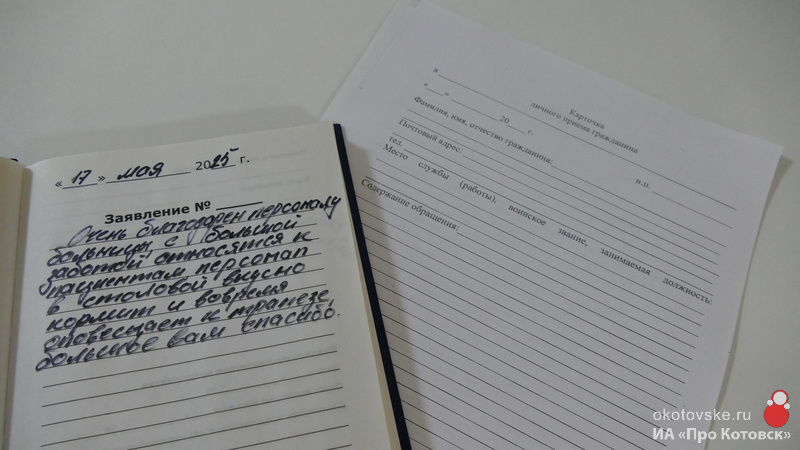 « 17 » мая 2025 г.
Заявление №
Очень благодарен персоналу
больницы с большой
заботой относятся к
пациентам персонал
в столовой вкусно
кормит и вовремя
оповещает к трапезе,
большое вам спасибо.
Карточка
личного приема гражданина
« » 20 г.
Фамилия, имя, отчество гражданина:
Почтовый адрес: н.п.
тел.
Место службы (работы), воинское звание, занимаемая должность:
Содержание обращения:
okotovske.ru
ИА «Про Котовск»